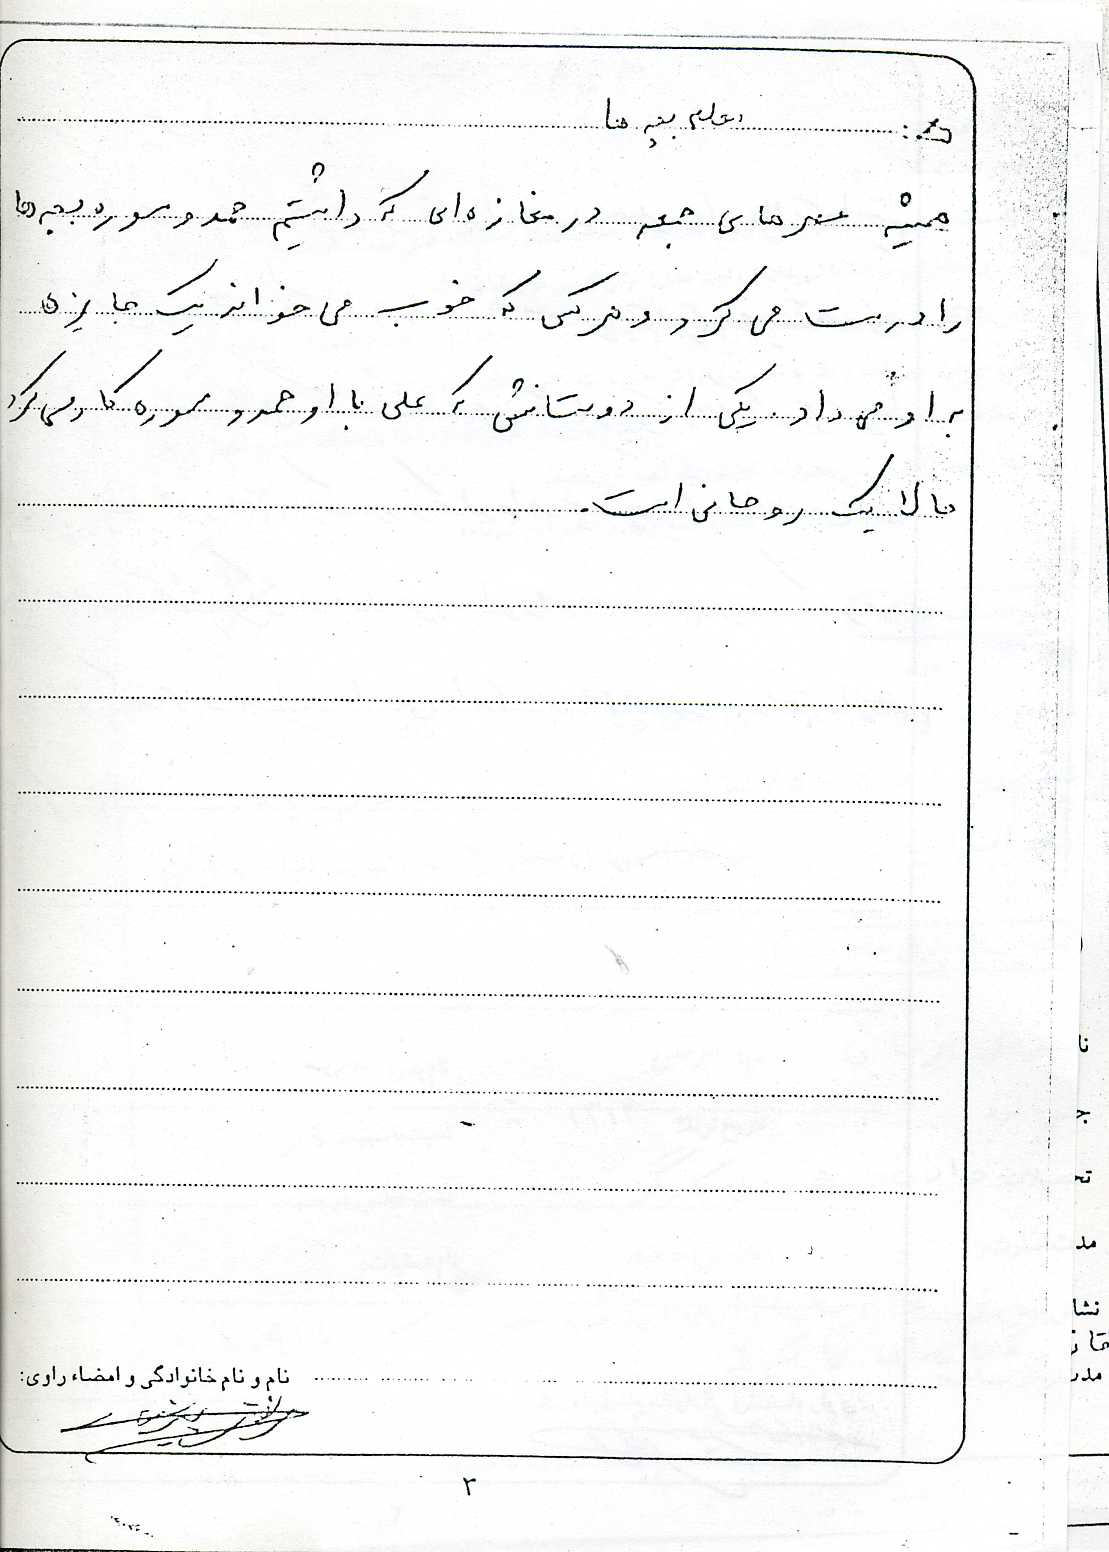 معلم بچه ها
همیشه عصرهای جمعه در مغازه‌ای که داشتیم حمد و سوره بچه‌ها
را درست می کرد و هرکس که خوب می خواند یک جایزه
به او می داد. یکی از دوستانش که علی با او حمد و سوره کار می‌کرد
حالا یک روحانی است.
نام و نام خانوادگی و امضاء راوی:
۳
نا
تح
مد
نشا
مدر